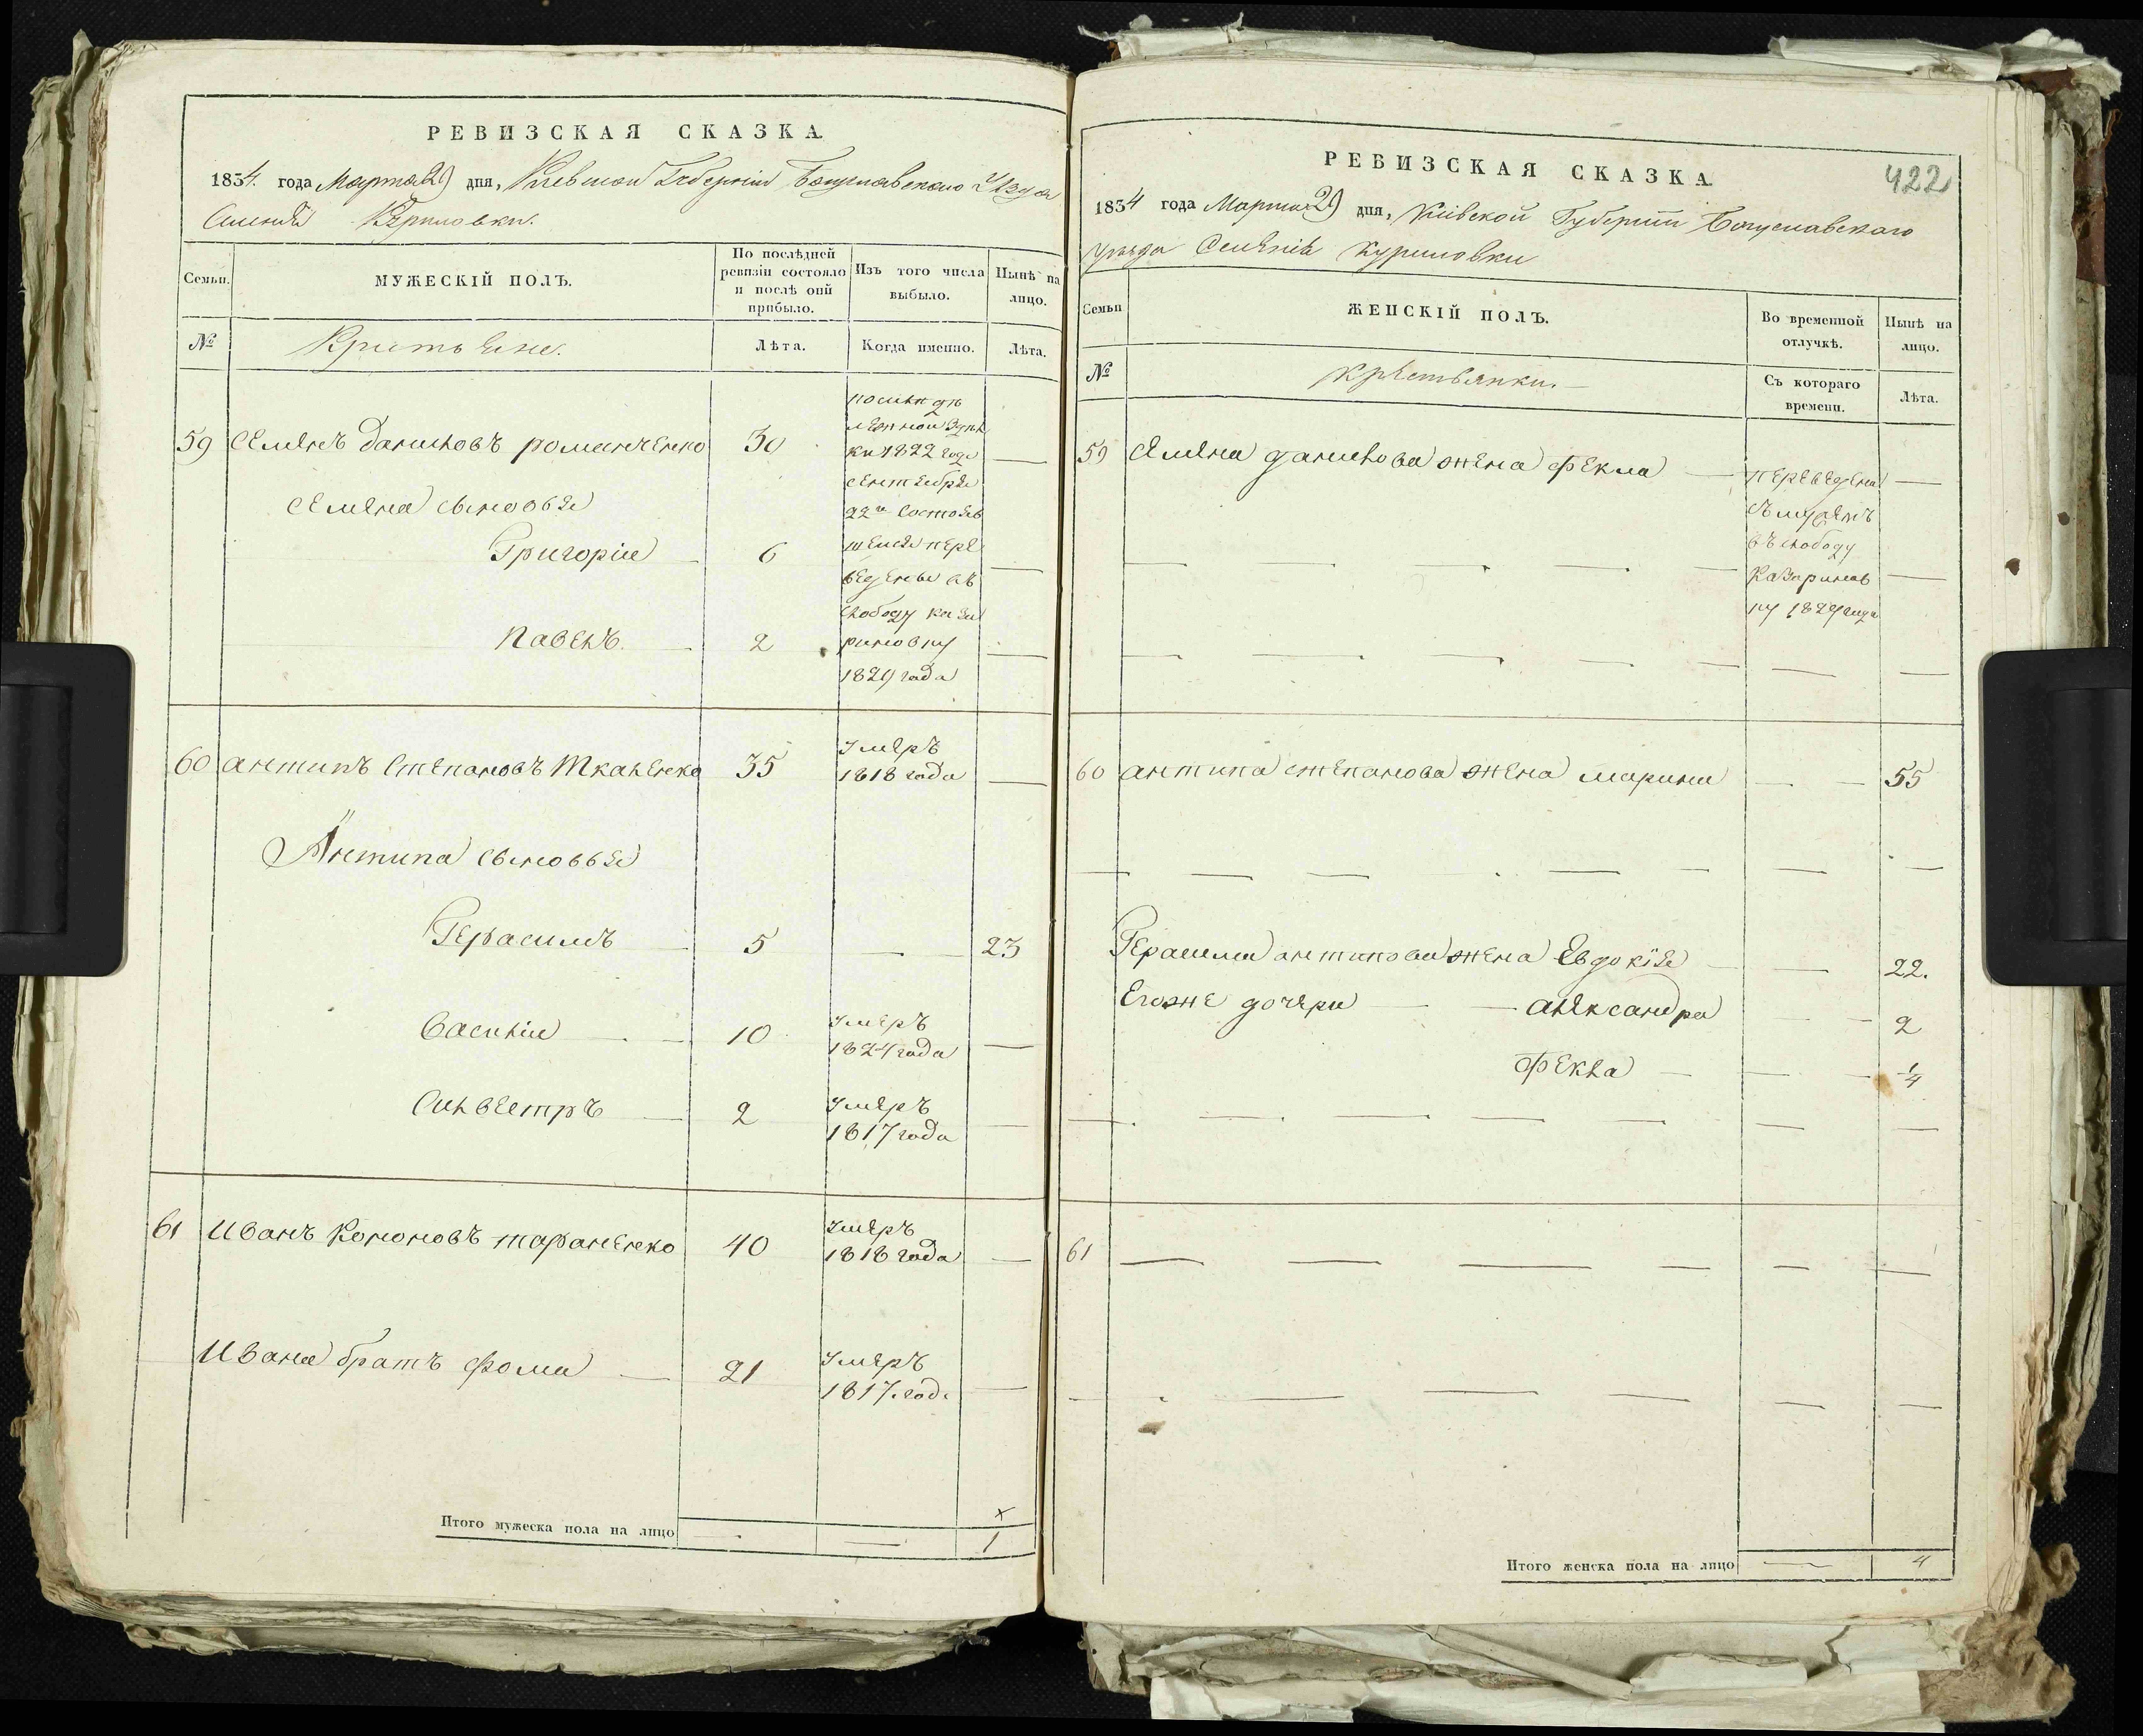 РЕВИЗСКАЯ СКАЗКА
1834. года Марта 29 дня, Киевской Губерніи Богуславского Уѣзда
Селенія Куриловки.
Семьи.
МУЖЕСКІЙ ПОЛЪ.
По послѣдней ревизіи состояло и послѣ оий прибыло.
Изъ того числа выбыло.
Нынѣ на лицо.
№
Крестьяне.
Лѣта.
Когда именно.
Лѣта.
59 Семенъ даниловъ романченко 30
по
1822 года
сентебря
22го состояв
шейся пере
ведены въ
слободу каза
риновку
1829 года
Семена сыновья
Григорій 6
павелъ. 2
60 антипъ степановъ Ткаченко 35 умеръ
1818 года
Антипа сыновья
Герасимъ 5 23
василій 10 умеръ
1824 года
силвестръ 2 умеръ
1817 года
61 Иванъ кононовъ тараненко 40 умеръ
1818 года
Ивана братъ фома 21 умеръ
1817. года
Итого мужеска пола на лицо 1
422
РЕВИЗСКАЯ СКАЗКА
1834 года Марта 29 дня, Кіевской Губерніи Богуславскаго
уѣзда Селенія Куриловки
Семьи
ЖЕНСКІЙ ПОЛЪ.
Во временной отлучкѣ.
Нынѣ на лицо.
№
крестьянки.
Съ котораго времени.
Лѣта.
59 Семена данилова жена фекла переведена
съ мужемъ
въ слободу
Казаринов
ку 1829 года
60 антипа степанова жена марина 55
Герасима антипова жена Евдокія 22.
Егоже дочери александра 2
фекла 1/4
61
Итого женска пола на лицо 4